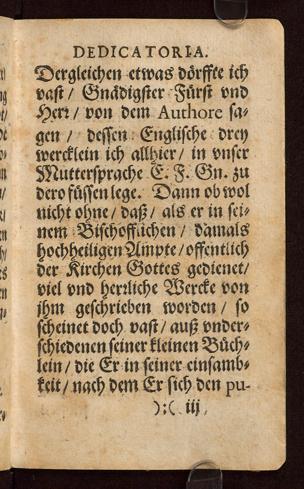 DEDICATORIA.
Dergleichen etwas dörffte ich
vast / Gnädigster Fürst vnd
Herr / von dem Authore sa-
gen / dessen Englische drey
wercklein ich allhier / in vnser
Muttersprache E. F. Gn. zu
dero füssen lege. Dann ob wol
nicht ohne / daß / als er in sei-
nem Bischofflichen / damals
hochheiligen Ampte / offentlich
der Kirchen Gottes gedienet /
viel vnd herzliche Wercke von
jhm geschrieben worden / so
scheinet doch vast / auß vnder-
schiedenen seiner kleinen Büch-
lein / die Er in seiner einsamb-
keit / nach dem Er sich den pu-
):( iij